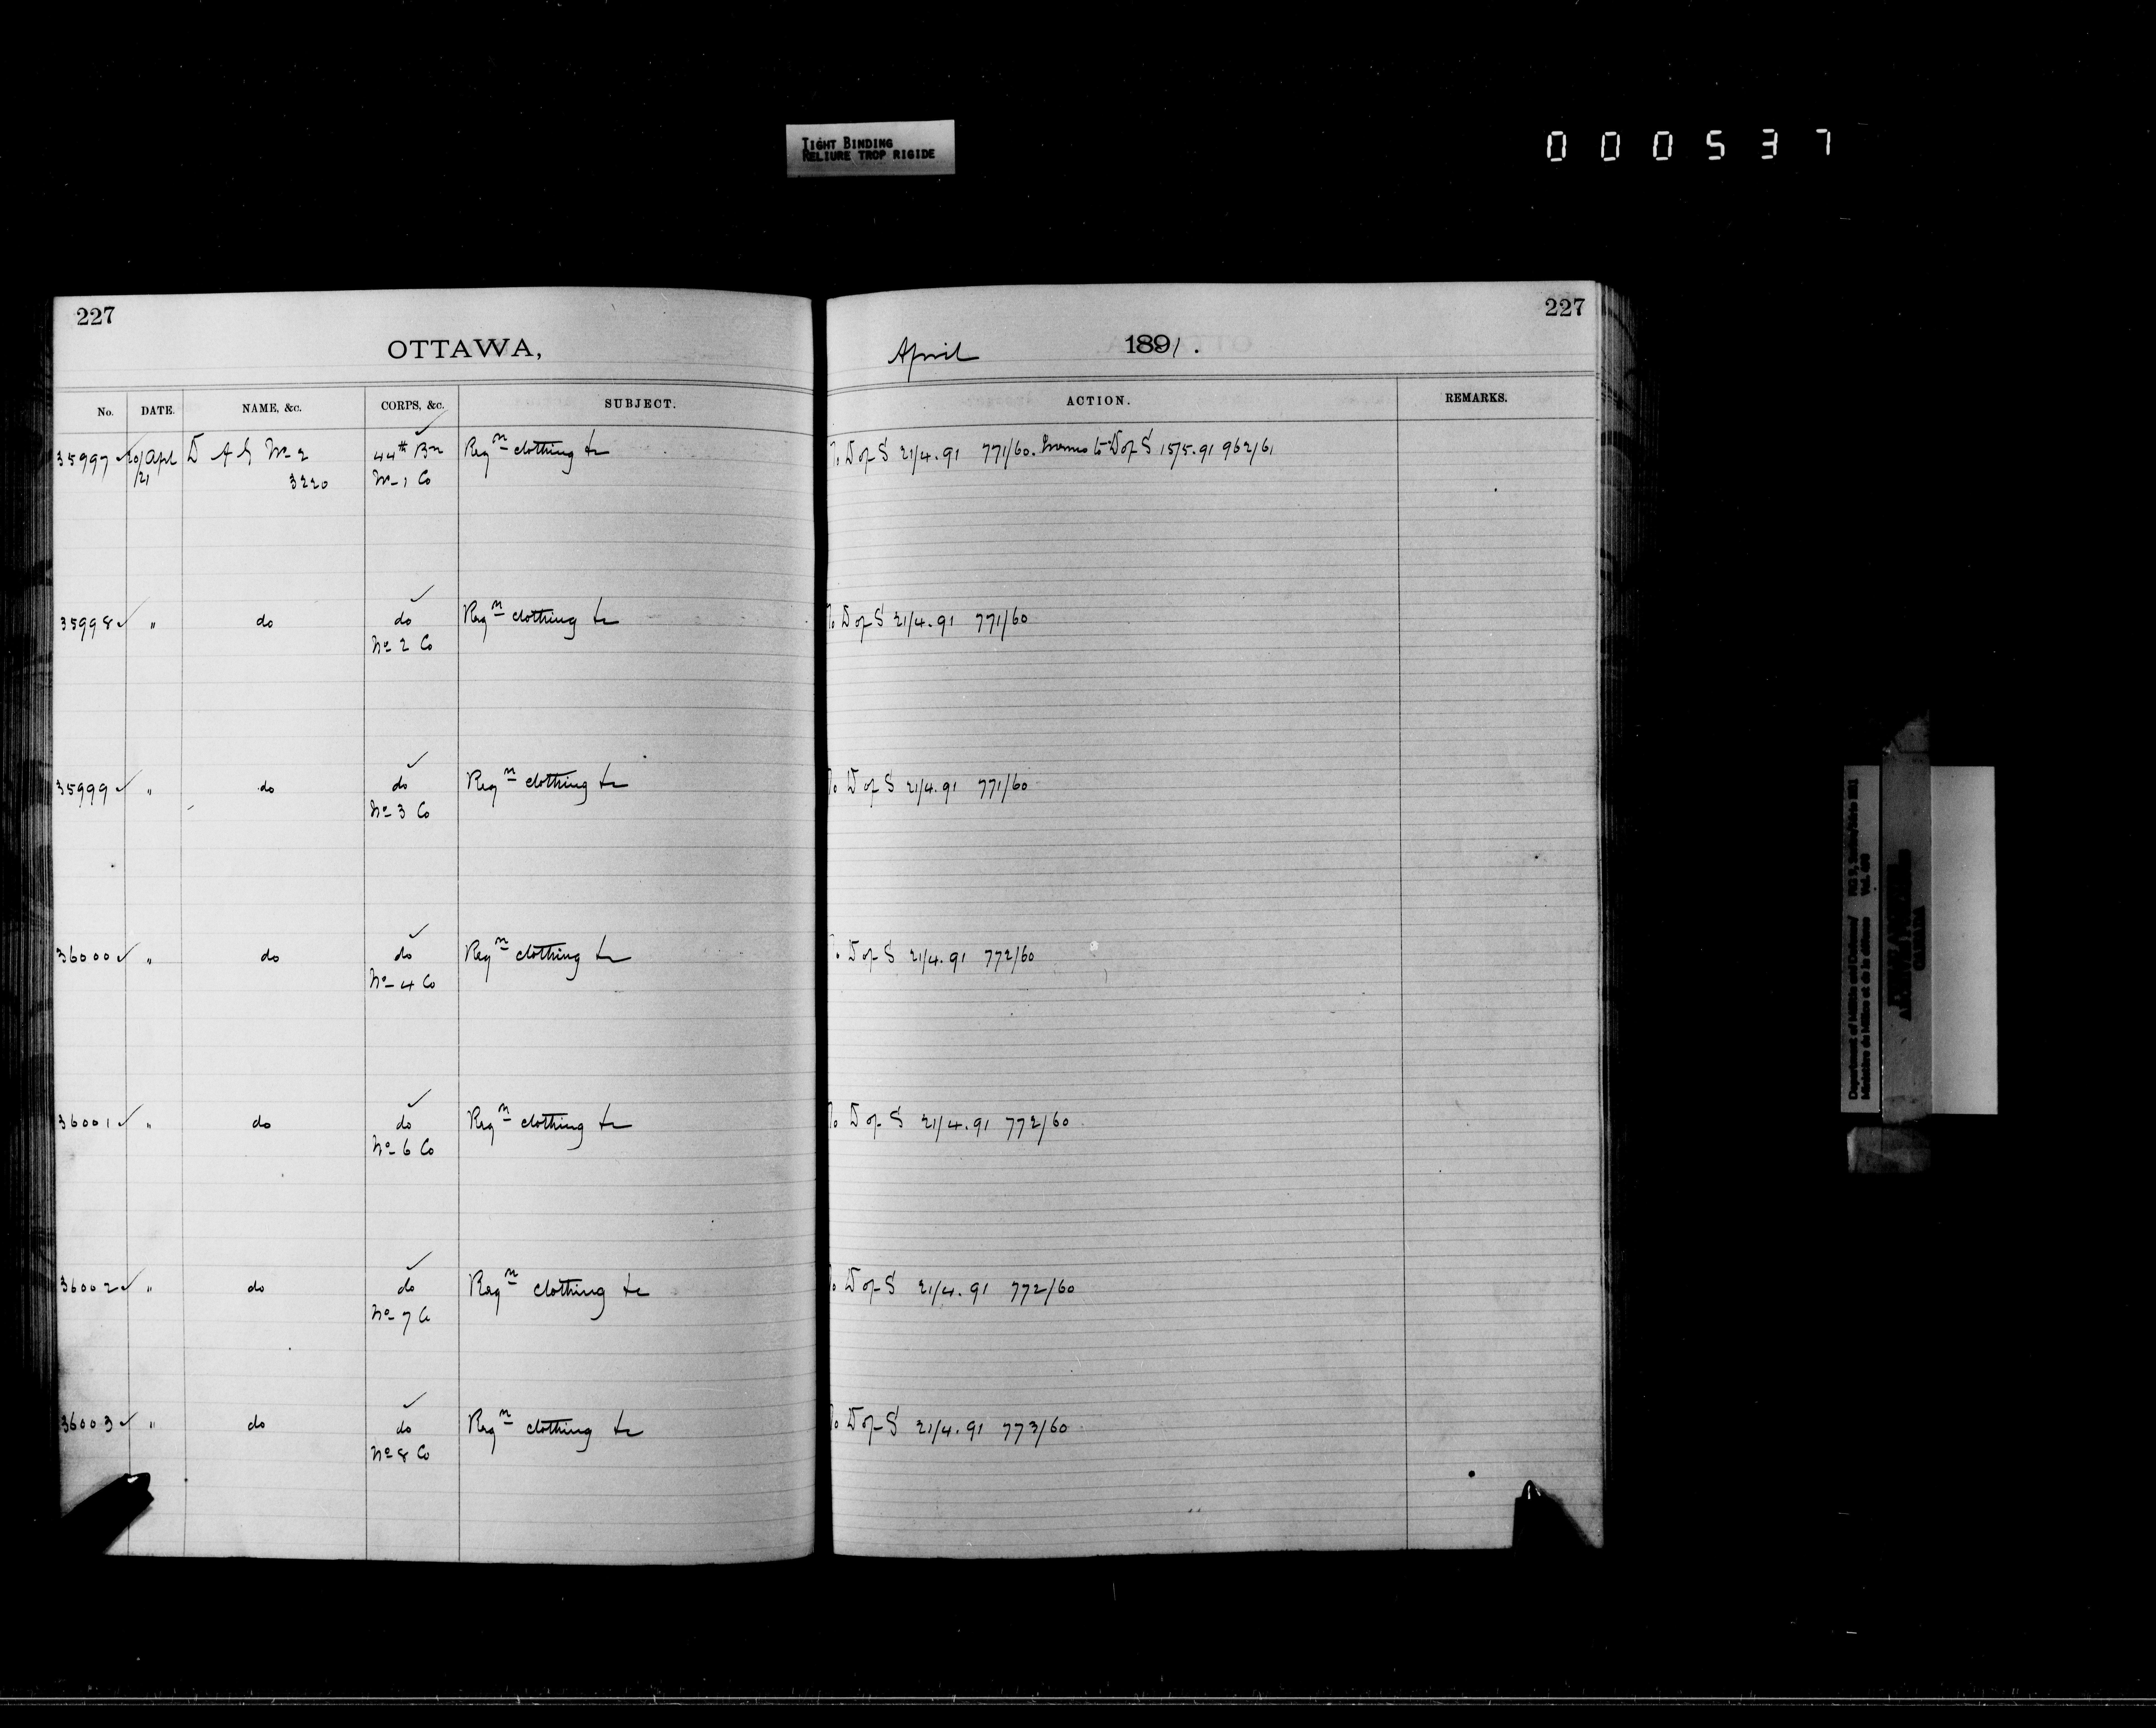 TIGHT BINDING
RELIURE TROP RIGIDE
000537
227
OTTAWA,
No. DATE. NAME, &c. CORPS, &c. SUBJECT.
35997 ✓ 20/Apl D A G No 2 44th Bn Reqn clothing &c
/21 3220 No 1 Co
35998 ✓ " do do Reqn clothing &c
No 2 Co
35999 ✓ " do do Reqn clothing &c
No 3 Co
36000 ✓ " do do Reqn clothing &c
No 4 Co
36001 ✓ " do do Reqn clothing &c
No 6 Co
36002 ✓ " do do Reqn clothing &c
No 7 Co
36003 ✓ " do do Reqn clothing &c
No 8 Co
227
April 1891.
ACTION. REMARKS.
To D of S 21/4.91 771/60. Memo to D of S 15/5.91 962/61
To D of S 21/4.91 771/60
To D of S 21/4.91 771/60
To D of S 21/4.91 772/60
To D of S 21/4.91 772/60
To D of S 21/4.91 772/60
To D of S 21/4.91 773/60
Department of Militia and Defence/
Ministère de Milice et de la défense